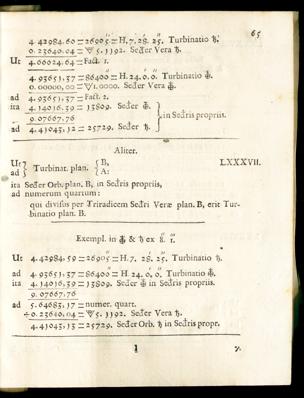 65
4. 42984. 60 = 26905 = H. 7. 28. 25. Turbinatio ♄.
0. 23640. 04 = ▽ 5. 1192. Secter Vera ♄.
Ut 4. 66624. 64 = Fact. 1.
4. 93651, 37 = 86400 = H. 24. 0. 0. Turbinatio
0. 00000, 00 = ▽ 1. 0000. Secter Vera
ad 4. 93651, 37 = Fact. 2.
ita 4. 14016, 39 = 13809. Secter in Sectris propriis.
9. 07667. 76
ad 4. 41043, 12 = 25729. Secter ♄.
Aliter.
LXXXVII.
Ut Turbinat. plan. { B,
ad A:
ita Secter Orb. plan. B, in Sectris propriis,
ad numerum quartum:
qui divisus per Triradicem Sectri Veræ plan. B, erit Tur-
binatio plan. B.
Exempl. in & ♄ ex 8. 1.
Ut 4. 42984, 59 = 26905 = H. 7, 28. 25. Turbinatio ♄.
ad 4. 93651, 37 = 86400 = H. 24. 0. 0. Turbinatio
ita 4. 14016, 39 = 13809. Secter in Sectris propriis.
9. 07667, 76
ad 4. 64683, 17 = numer. quart.
÷ 0. 23640, 04 = ▽ 5. 1192. Secter Vera ♄.
4. 41043, 13 = 25729. Secter Orb. ♄ in Sectris propr.
I